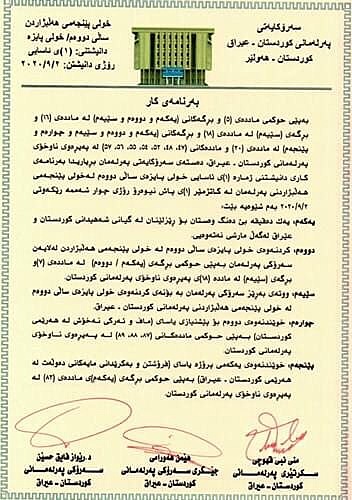 سەرۆکایەتی
پەرلەمانی کوردستان - عیراق
کوردستان - هەولێر
خولی پێنجەمی هەڵبژاردن
ساڵی دووەم/ خولی پایزە
دانیشتنی: (١)ی ئاسایی
ڕۆژی دانیشتن: ٢٠٢٠/٩/٢
بەرنامەی کار
بەپێی حوکمی ماددەی (٥) و بڕگەکانی (یەکەم و دووەم و سێیەم) لە ماددەی (١٦) و
بڕگەی (سێیەم) لە ماددەی (١٨) و بڕگەکانی (یەکەم و دووەم و سێیەم و چوارەم و
پێنجەم) لە ماددەی (٢٠) و ماددەکانی (٤٧، ٤٨، ٥٢، ٥٤، ٥٥، ٥٦، ٥٧) لە پەیڕەوی ناوخۆی
پەرلەمانی کوردستان - عیراق، دەستەی سەرۆکایەتی پەرلەمان بڕیاریدا بەرنامەی
کاری دانیشتنی ژمارە (١)ی ئاسایی خولی پایزەی ساڵی دووەم لە خولی پێنجەمی
هەڵبژاردنی پەرلەمان لە کاتژمێر (١)ی پاش نیوەڕۆ ڕۆژی چوار شەممە ڕێکەوتی
٢٠٢٠/٩/٢ بەم شێوەیە بێت:
یەکەم: یەک دەقیقە بێ دەنگ وەستان بۆ ڕێزلێنان لە گیانی شەهیدانی کوردستان و
عێراق لەگەڵ مارشی نەتەوەیی.
دووەم: کردنەوەی خولی پایزەی ساڵی دووەم لە خولی پێنجەمی هەڵبژاردن لەلایەن
سەرۆکی پەرلەمان بەپێی حوکمی بڕگەی (یەکەم / دووەم) لە ماددەی (٧)و
بڕگەی (سێیەم) لە ماددەی (١٨)ی پەیڕەوی ناوخۆی پەرلەمانی کوردستان.
سێیەم: وتەی بەڕێز سەرۆکی پەرلەمان بە بۆنەی کردنەوەی خولی پایزەی ساڵی دووەم
لە خولی پێنجەمی هەڵبژاردنی پەرلەمانی کوردستان - عیراق.
چوارەم: خوێندنەوەی دووەم بۆ پێشنیازی یاسای (ماف و ئەرکی نەخۆش لە هەرێمی
کوردستان) بەپێی حوکمی ماددەکانی (٨٧، ٨٨، ٨٩) لە پەیڕەوی ناوخۆی
پەرلەمانی کوردستان.
پێنجەم: خوێندنەوەی یەکەمی پڕۆژە یاسای (فرۆشتن و بەکرێدانی ماڵەکانی دەوڵەت لە
هەرێمی کوردستان - عیراق) بەپێی حوکمی بڕگەی (یەکەم)ی ماددەی (٨٢) لە
پەیڕەوی ناوخۆی پەرلەمانی کوردستان.
منی نبی قهوچی
سکرتێری پەرلەمانی
کوردستان - عیراق
هێمن هەورامی
جێگری سەرۆکی پەرلەمانی
کوردستان - عیراق
د.ڕێواز فایق حسێن
سەرۆکی پەرلەمانی
کوردستان - عیراق